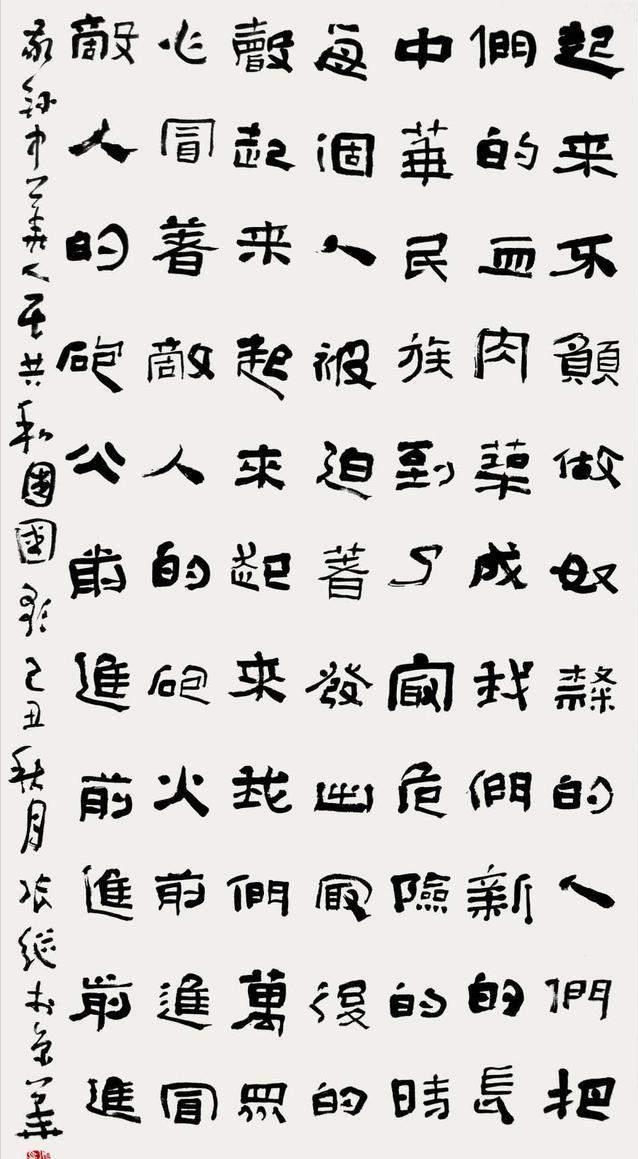 起来不願做奴隸的人們把
們的血肉築成我們新的長
中華民族到了最危險的時
每個人被迫著發出最後的
聲起来起來起來我們萬眾
心冒著敵人的砲火前進冒
敵人的砲火前進前進前進
敬中華人民共和國國歌己丑秋月張継於京華